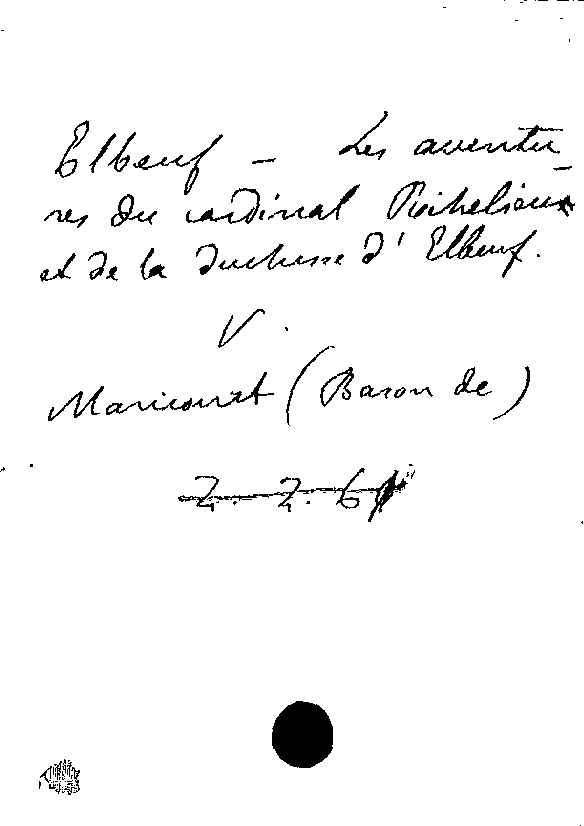 Elbeuf – Les aventu-
res du cardinal Richelieu
et de la duchesse d'Elbeuf.
V.
Maricourt (Baron de)
2. 2. 6